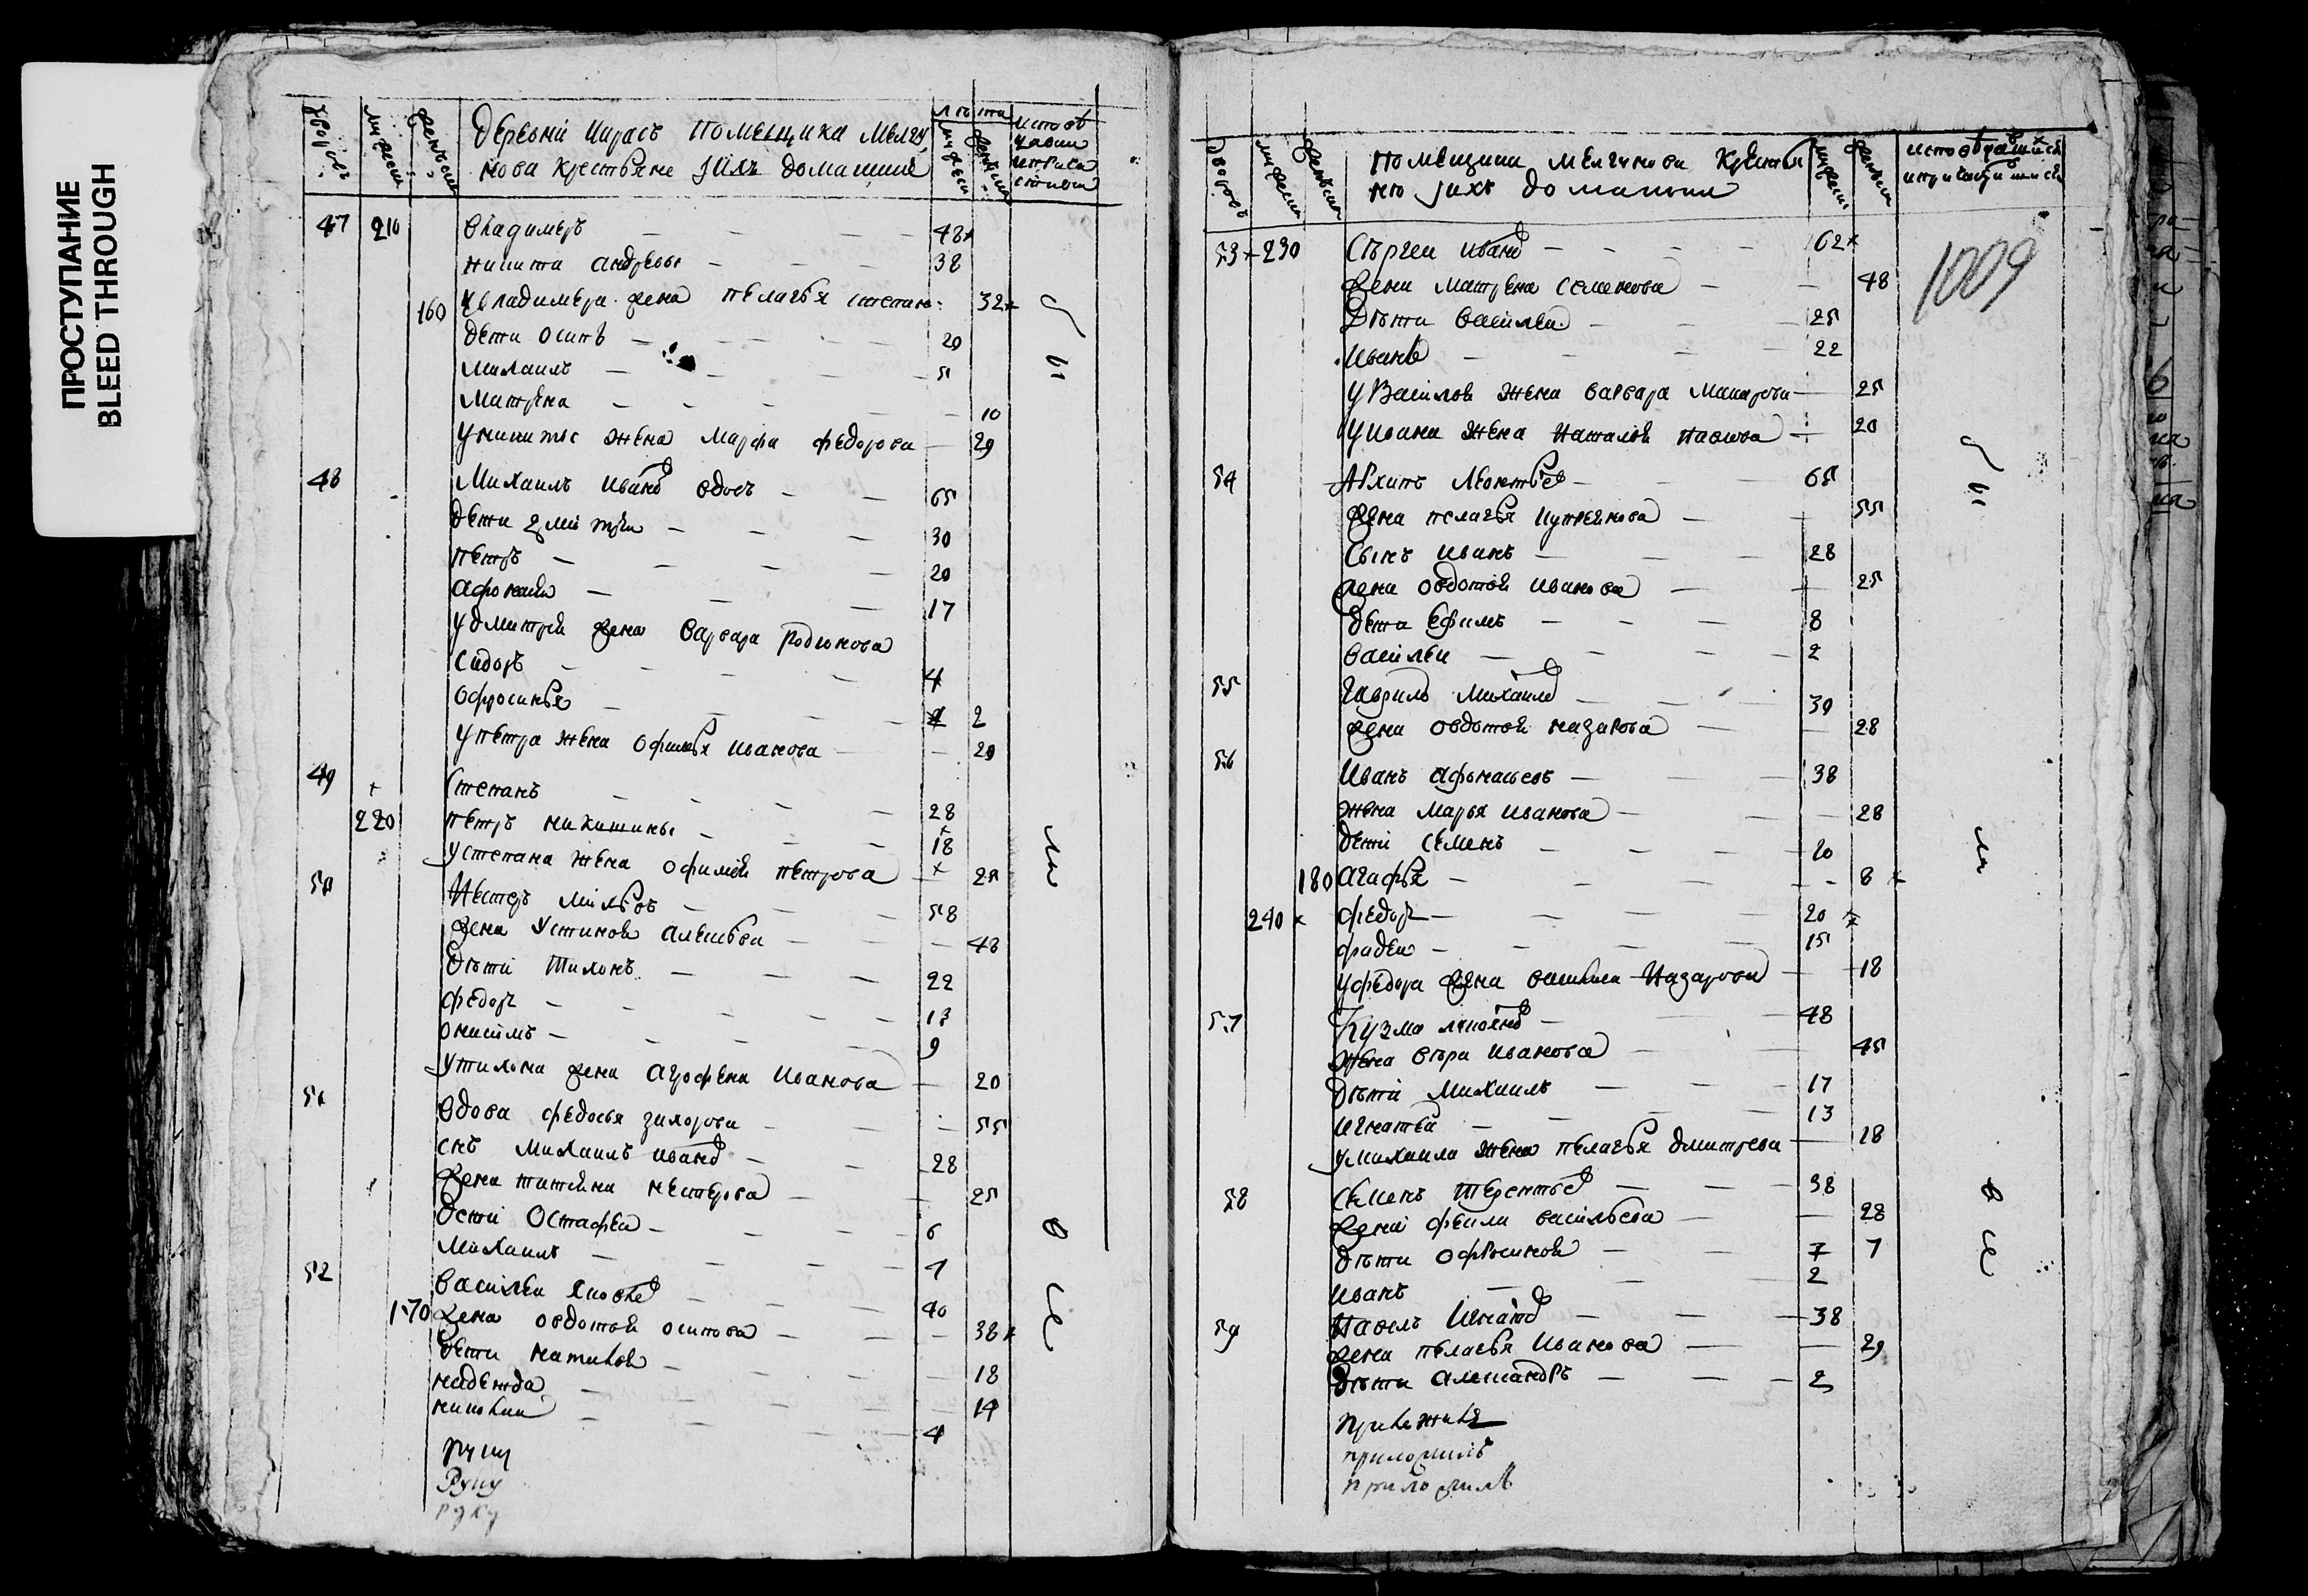 ПРОСТУПАНИЕ
BLEED THROUGH
дворовъ мужеск женьски деревни помещика Мелгу лѣта
нова крестьяне ихъ домашние
47 210 владимеръ — 48
никита андреевы — 38
160 увладимера жена пелагѣя степан: 32
дети осипъ — 20
михаилъ — 5
матрена — 10
уникиты жена марфа федорова — 29
48 Михаилъ иванов вдовъ — 65
дети дмитреи — 30
петръ — 20
афонасеи — 17
удмитрея жена варвара родионова
сидоръ — 4
офросинья — 2
упетра жена офимья иванова — 20
49 степанъ — 28
220 петръ никитины — 18
устепана жена офимия петрова — 25
50 Нестеръ — 58
жена устиния алексѣева — 48
дѣти тихонъ — 22
федоръ — 13
онисимъ — 9
утихона жена агрофена иванова — 20
51 вдова федосья захарова — 55
снъ михаилъ иванов — 28
жена татияна нестерова — 25
дети остафеи — 6
михаилъ — 1
52 василеи — 40
170 жена овдотья осипова — 38
дети наталья — 18
надежда — 14
николаи — 4
руку
Руку
руку
дворовъ мужеск женьски помещика мелгунова крестья мужеск женьски исповѣдавшийся
не ихъ домашныя и причастившийся
1009
53 230 Сѣргеи иванов — 62
жена матрена семенова — 48
Дѣти василеи — 25
иванъ — 22
увасилья жена варвара макарова — 25
уивана жена наталья павлова — 20
54 Архипъ леонтьев — 65
жена пелагѣя — 55
сынъ иванъ — 28
жена овдотья иванова — 25
дети ефимъ — 8
василеи — 2
55 гаврило михаилов — 30
жена овдотья назарова — 28
56 иванъ афонасьевъ — 38
жена марья иванова — 28
дети семенъ — 10
180 агафья — 8
240 федоръ — 20
фадеи — 15
уфедора жена василиса назарова — 18
57 кузма — 48
жена вѣра иванова — 45
дѣти михаилъ — 17
игнатеи — 13
умихаила жена пелагѣя дмитрева — 18
58 семенъ терентьев — 38
жена фекла васильева — 28
дѣти офросиния — 7 7
иванъ — 2
59 павелъ игнатов — 38
жена пелагѣя иванова — 29
дѣти александръ — 2
приложилъ
приложилъ